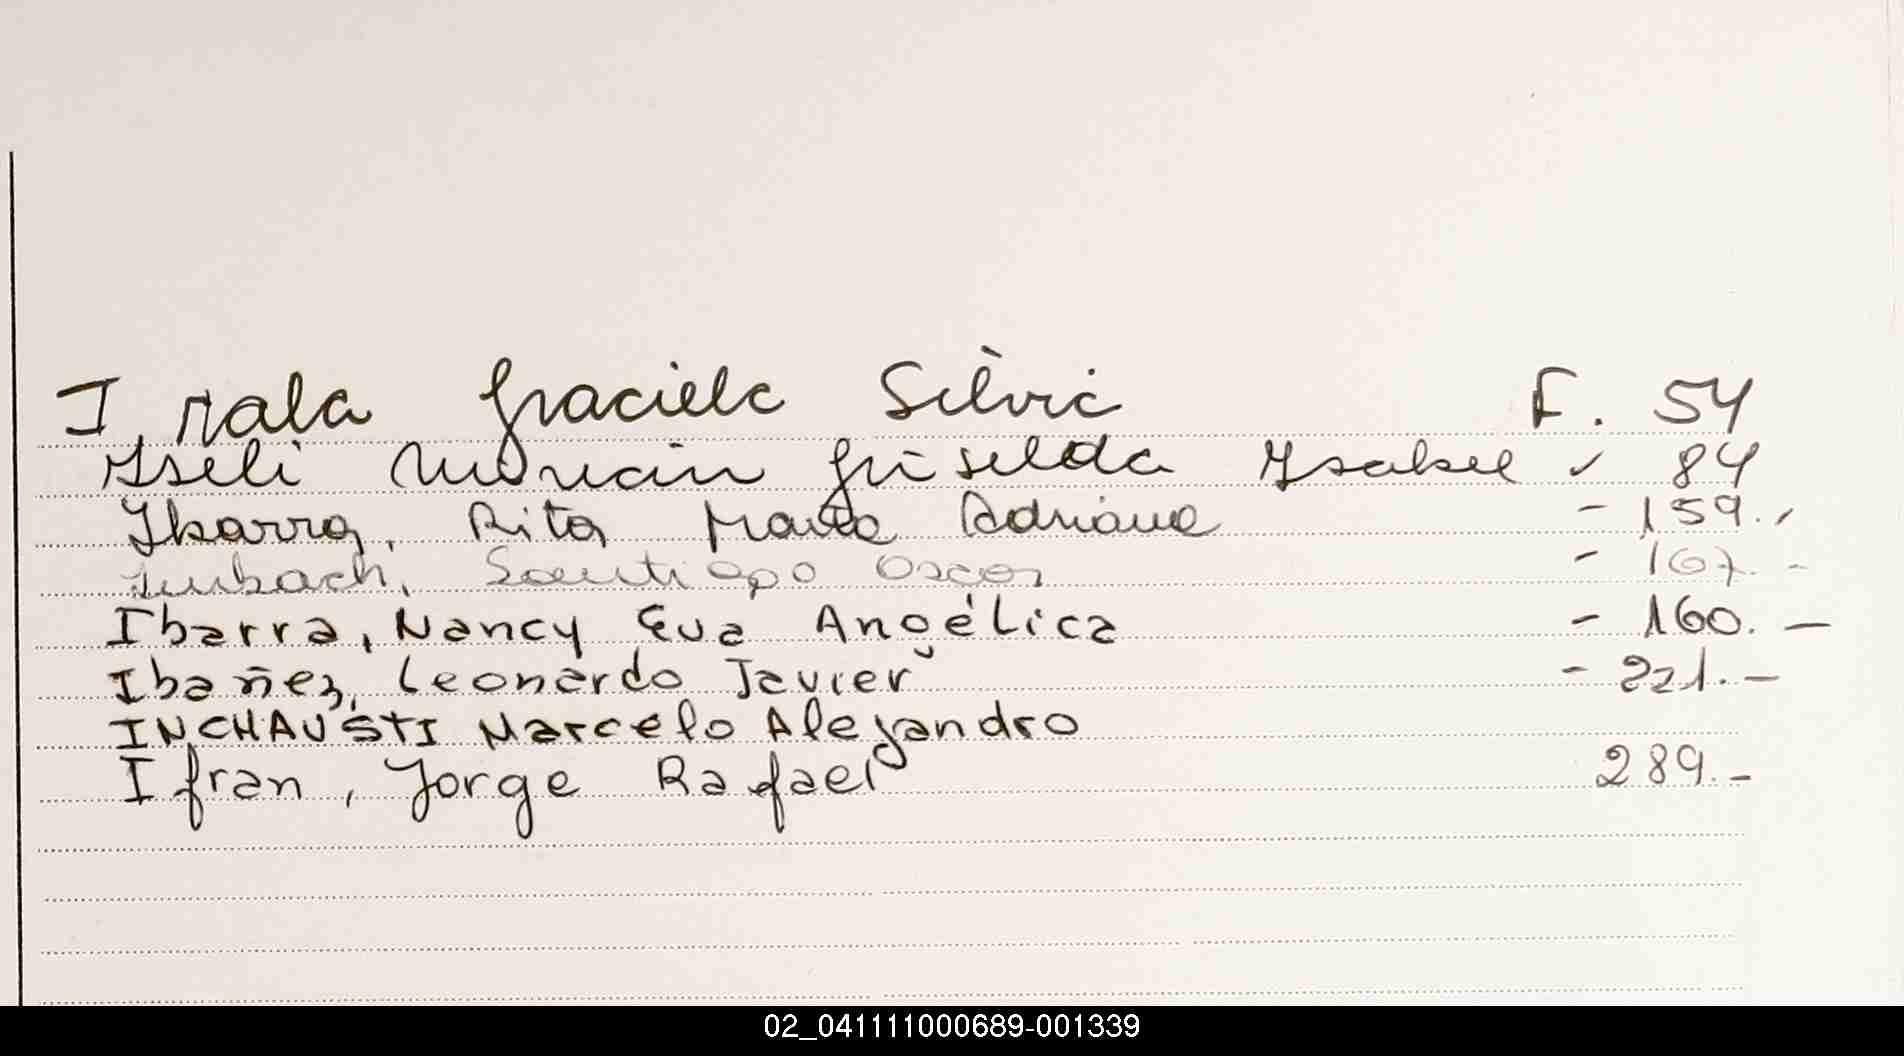 Irala Graciela Silvia F. 54
Yseli Griselda Ysabel 84
Ybarra, Rita María Adriana - 159.
Imbach, Santiago Oscar - 167. -
Ibarra, Nancy Eva Angélica - 160. -
Ibañez, Leonardo Javier - 221. -
INCHAUSTI Marcelo Alejandro
Ifran, Jorge Rafael 289. -
02_041111000689-001339